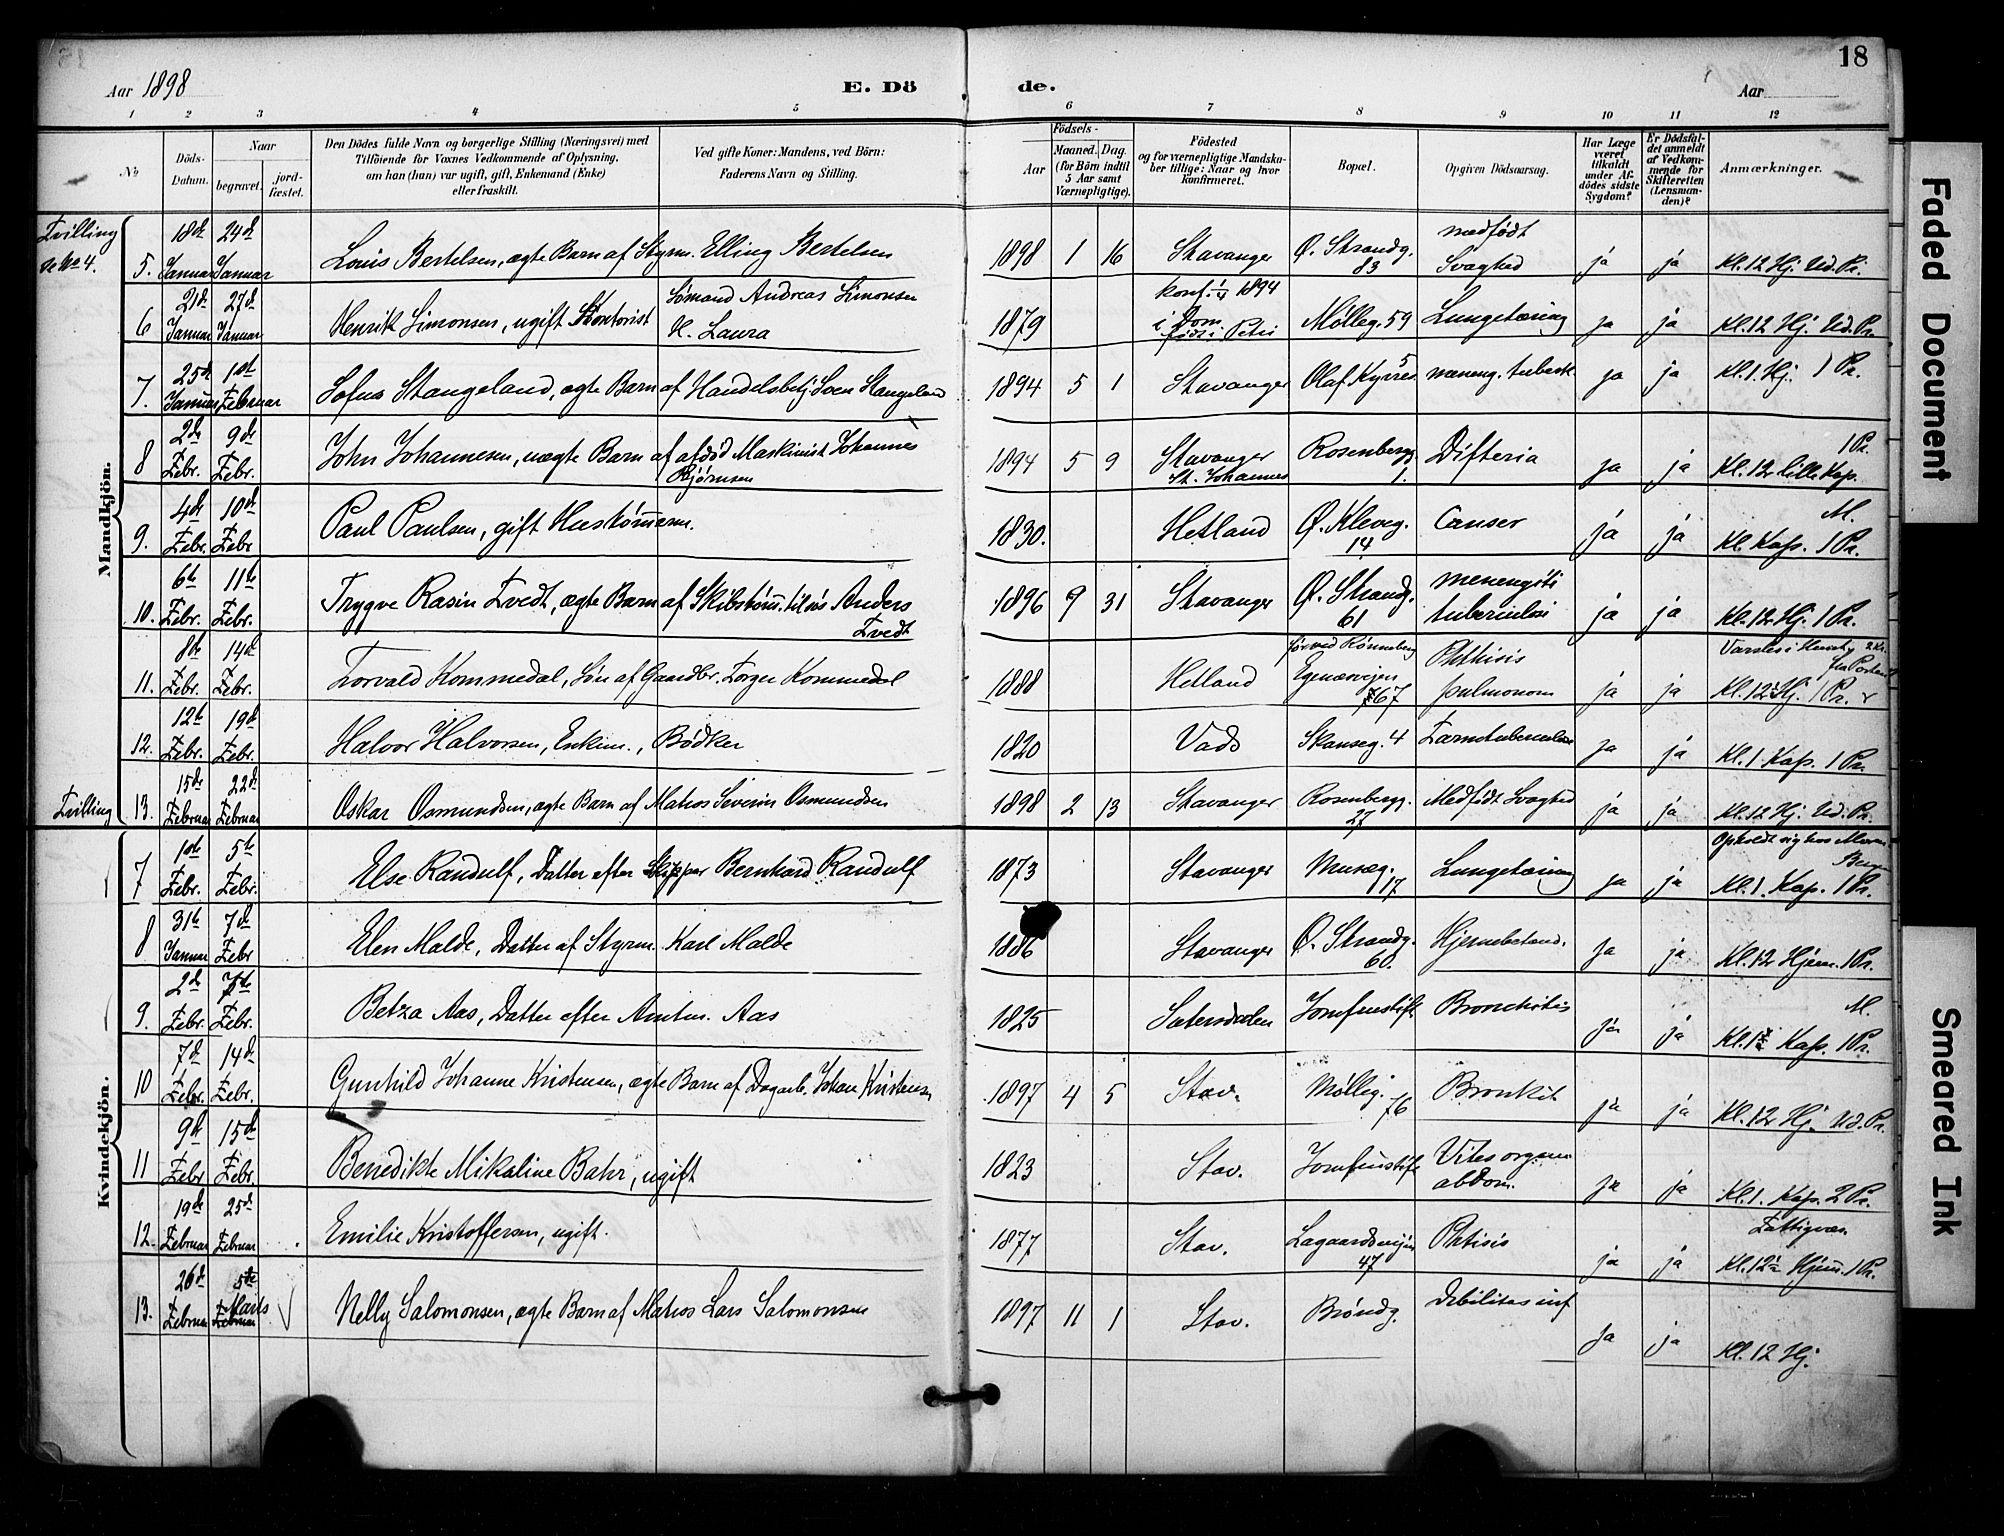 18
Aar 1898
E. Dö
de.
Aar
1 2 3 4 5 6 7 8 9 10 11 12
No
Döds-Datum.
Naar
begravet.
jord-fæstet.
Den Dödes fulde Navn og borgerlige Stilling (Næringsvei) med
Tilföiende for Voxnes Vedkommende af Oplysning,
om han (hun) var ugift, gift, Enkemand (Enke)
eller fraskilt.
Ved gifte Koner: Mandens, ved Börn:
Faderens Navn og Stilling.
Födsels-
Aar
Maaned. Dag.
(for Börn indtil
5 Aar samt
Værnepligtige).
Födested
og for værnepligtige Mandska-
ber tillige: Naar og hvor
konfirmeret.
Bopæl.
Opgiven Dödsaarsag.
Har Læge
været
tilkaldt
under Af-
dödes sidste
Sygdom?
Er Dödsfal-
det anmeldt
af Vedkom-
mende for
Skifteretten
(Lensman-
den)?
Anmærkninger.
Mandkjön.
Tvilling No 4. 5. 18de Januar 24de Januar Louis Bertelsen, ægte Barn af Styrm. Elling Bertelsen 1898 1 16 Stavanger Ø. Strandg. 83 medfödt Svaghed ja ja Kl. 12 Hj. Ud. Pr.
6 21de Januar 27de Januar Henrik Simonsen, ugift Kontorist Sømand Andreas Simonsen H. Laura 1879 konf. 1/4 1894 i Dom født i Petri Mølleg. 59 Lungetæring ja ja Kl. 12 Hj. Ud. Pr.
7. 25de Januar 1ste Februar Sofus Stangeland, ægte Barn af Handelsbetj. Sven Stangeland 1894 5 1 Stavanger Olaf Kyrres 5 mæneng. tuberk ja ja Kl. 1. Hj. 1 Pr.
8 2de Febr. 9de Febr. John Johannesen, uægte Barn af afdød Maskinist Johannes Bjørnsen 1894 5 9 Stavanger St. Johannes Rosenbergg. 1. Difteria ja ja 1 Pr. Kl. 12 lille Kap.
9. 4de Febr. 10de Febr Paul Paulsen, gift Hustømmerm. 1830. Hetland Ø. Kleveg. 14 Canser ja ja M. Kl. Kap. 1 Pr.
10. 6te Febr. 11te Febr. Trygve Rasin Tvedt, ægte Barn af Skibstøm. tilsøs Anders Tvedt 1896 9 31 Stavanger Ø. Strandg. 61 menengiti tuberculosi ja ja Kl. 12 Hj. 1 Pr.
11. 8de Febr. 14de Febr. Torvald Kommedal, Søn af Gaardbr. Torger Kommedal 1888 Hetland før ved Rønneberg Egnæsveien 67 Phthisis pulmonom ja ja Kl. 12 Hj. 1 Pr.
12. 12te Febr. 19de Febr. Halvor Halvorsen, Enkem., Bødker 1820 Vads Skanseg. 4 Tarmtuberculose ja ja Kl. 1. Kap. 1 Pr.
Tvilling 13. 15de Februar 22de Februar Oskar Osmundsen, ægte Barn af Matros Severin Osmundsen 1898 2 13 Stavanger Rosenbergg. 27 Medfødt Svaghed ja ja Kl. 12 Hj. Ud. Pr.
Kvindekjön.
7 1ste Febr. 5te Febr. Else Randulf, Datter efter Skipper Bernhard Randulf 1873 Stavanger Musæg. 17 Lungetæring ja ja Opholdt sig hos Kl. 1. Kap. 1 Pr.
8 31te Januar 7de Febr Elen Malde, Datter af Styrm. Karl Malde 1886 Stavanger Ø. Strandg. 60. Hjernebetænd. ja ja Kl. 12 Hjem. 1 Pr.
9. 2de Febr. Febr. Betza Aas, Datter efter Amtm. Aas 1825 Sætersdalen Jomfrustift. Bronchitis ja ja M. Kl. 1 Kap. 1 Pr.
10 7de Febr. 14de Febr. Gunhild Johanne Kristensen, ægte Barn af Dagarb. Johan Kristensen 1897 4 5 Stav. Mølleg. 76 Bronkit ja ja Kl. 12 Hj. Ud. Pr.
11 9de Febr 15de Febr. Benedikte Mikaline Bahr, ugift 1823 Stav. Jomfrustift Vites organ abdom. ja ja Kl. 1. Kap. 2 Pr.
12. 19de Februar 25de Februar Emilie Kristoffersen, ugift. 1877 Stav. Lagaardsveien 47 Phtisis ja ja Fattigvæs. Kl. 12 Hjem. 1 Pr.
13. 26de Februar 5te Marts Februar Nelly Salomonsen, ægte Barn af Matros Lars Salomonsen 1897 11 1 Stav. Brøndg. Debilitas inf ja ja Kl. 12 Hj.
Faded Document
Smeared Ink